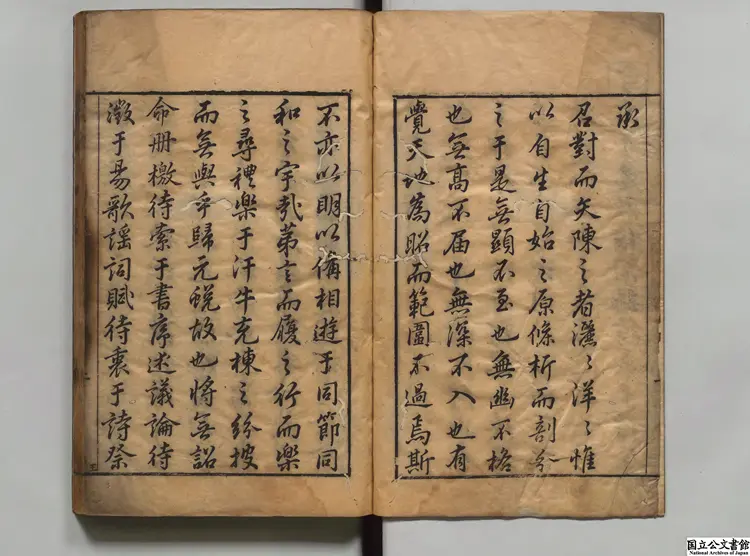 承
召對而矢陳之者灑〻洋〻惟
以自生自始之原條析而剖分
之于是無顯不至也無幽不格
也無高不届也無深不入也有
覺天地爲昭而範圍不過焉斯
不亦以明以備相遊于同節同
和之宇哉第言而履之行而樂
之尋禮樂于汗牛充棟之紛披
而無與乎歸元蛻故也將無詔
命册檄待索于書序述議論待
徵于易歌謡詞賦待衷于詩祭
国立公文書館
National Archives of Japan